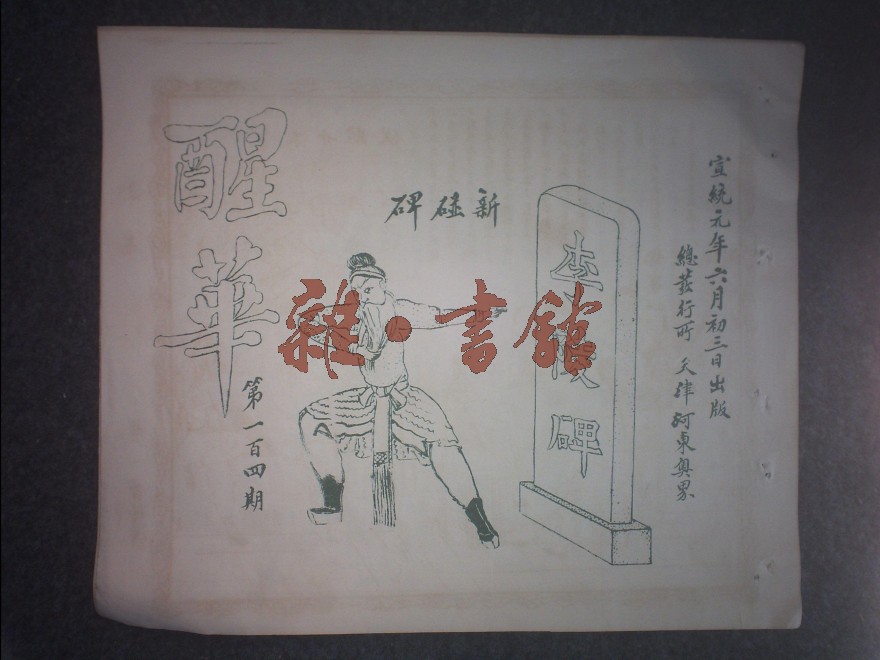 宣統元年六月初三日出版
總發行所 天津河東奧界
李陵碑
新碰碑
醒華
第一百四期
雜·書館